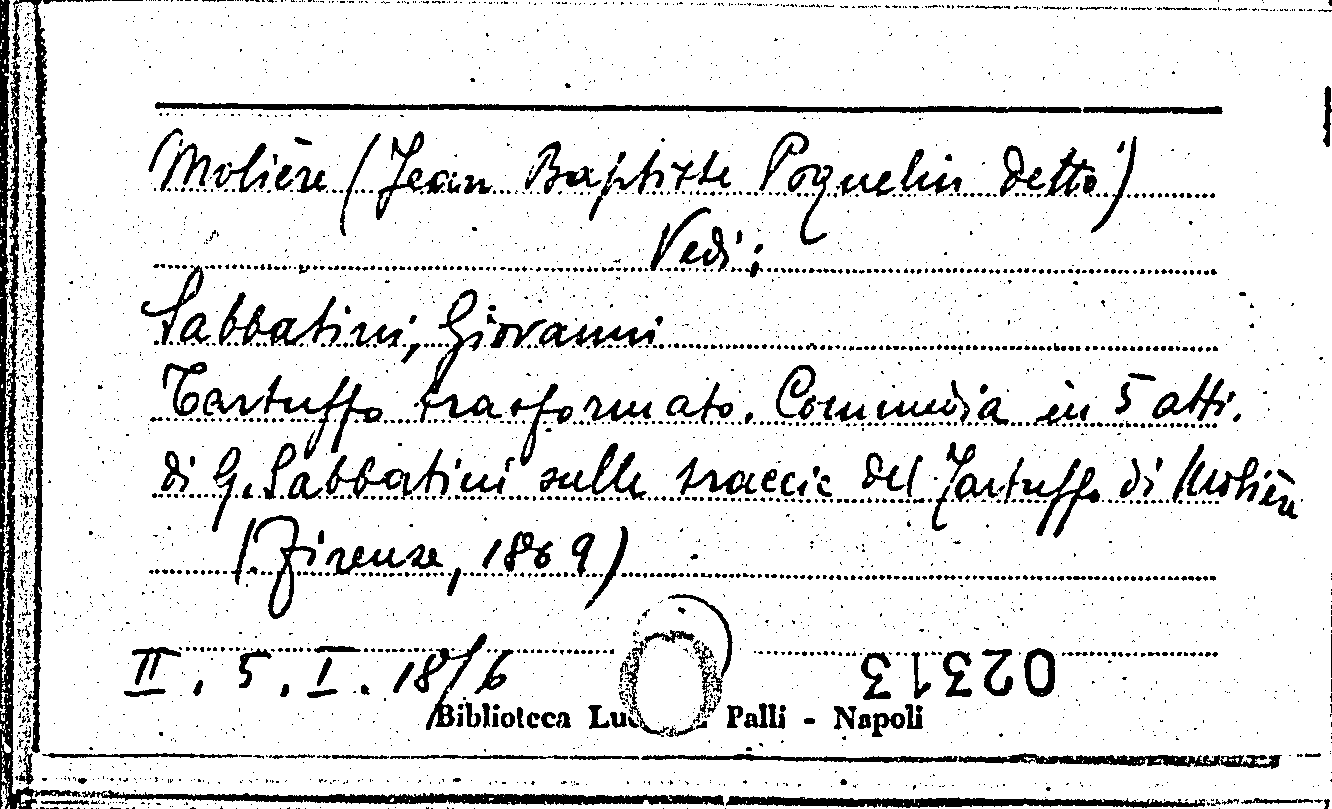 Molière (Jean Baptiste Poquelin detto)
Vedi:
Sabbatini, Giovanni
Tartuffo trasformato. Commedia in 5 atti.
di G. Sabbatini sulle traccie del Tartuffo di Molière
(Firenze, 1869)
II. 5. I. 18/6
02313
Biblioteca Palli - Napoli